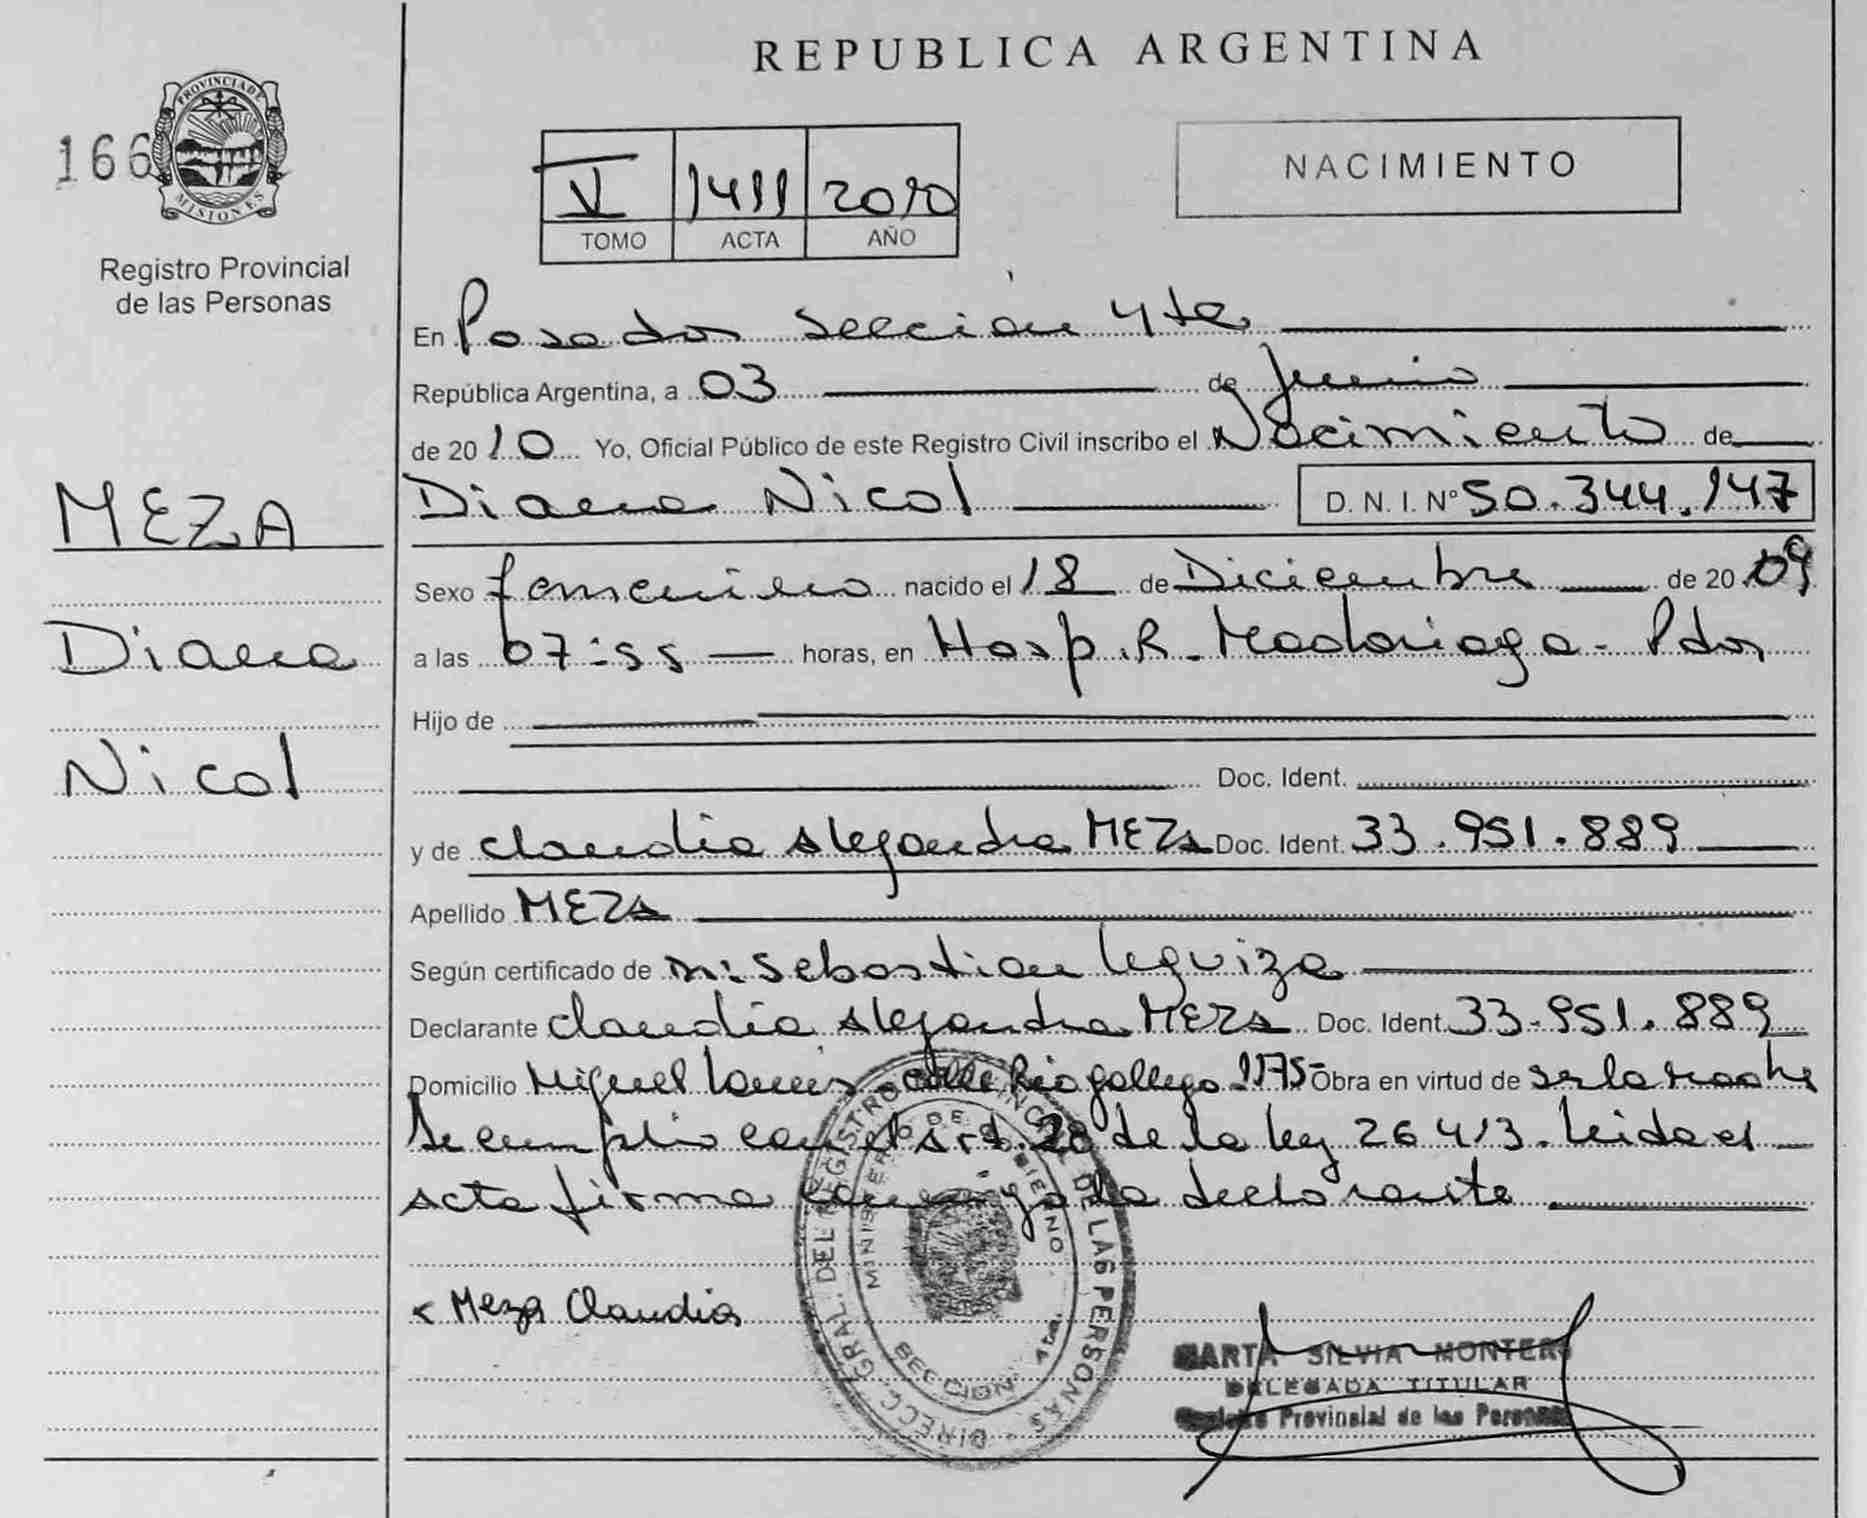 REPUBLICA ARGENTINA
166
PROVINCIA DE
MISIONES
Registro Provincial
de las Personas
V 1411 2010
TOMO ACTA AÑO
NACIMIENTO
En Posadas sección 4ta
República Argentina, a 03 de Junio
de 2010 Yo, Oficial Público de este Registro Civil inscribo el Nacimiento de
Diana Nicol D. N. I. Nº 50.344.147
MEZA
Diana
Nicol
Sexo femenino nacido el 18 de Diciembre de 2009
a las 07:55 horas, en Hosp. R. Madariaga - Pdas
Hijo de
Doc. Ident.
y de Claudia Alejandra MEZA Doc. Ident. 33.951.889
Apellido MEZA
Según certificado de Sebastian Leguiza
Declarante Claudia Alejandra MEZA Doc. Ident. 33.951.889
Domicilio Miguel Lanús - calle Rio gallego 1175 Obra en virtud de ser la madre
Se cumplio con el Art. 28 de la ley 26413. Leida el
acta firma conmigo la declarante
< Meza Claudia
DIRECC. GRAL. DEL REGISTRO PROVINCIAL DE LAS PERSONAS
MINISTERIO DE GOBIERNO
SECCION 4ta.
MARTA SILVIA MONTERO
DELEGADA TITULAR
Registro Provincial de las Personas